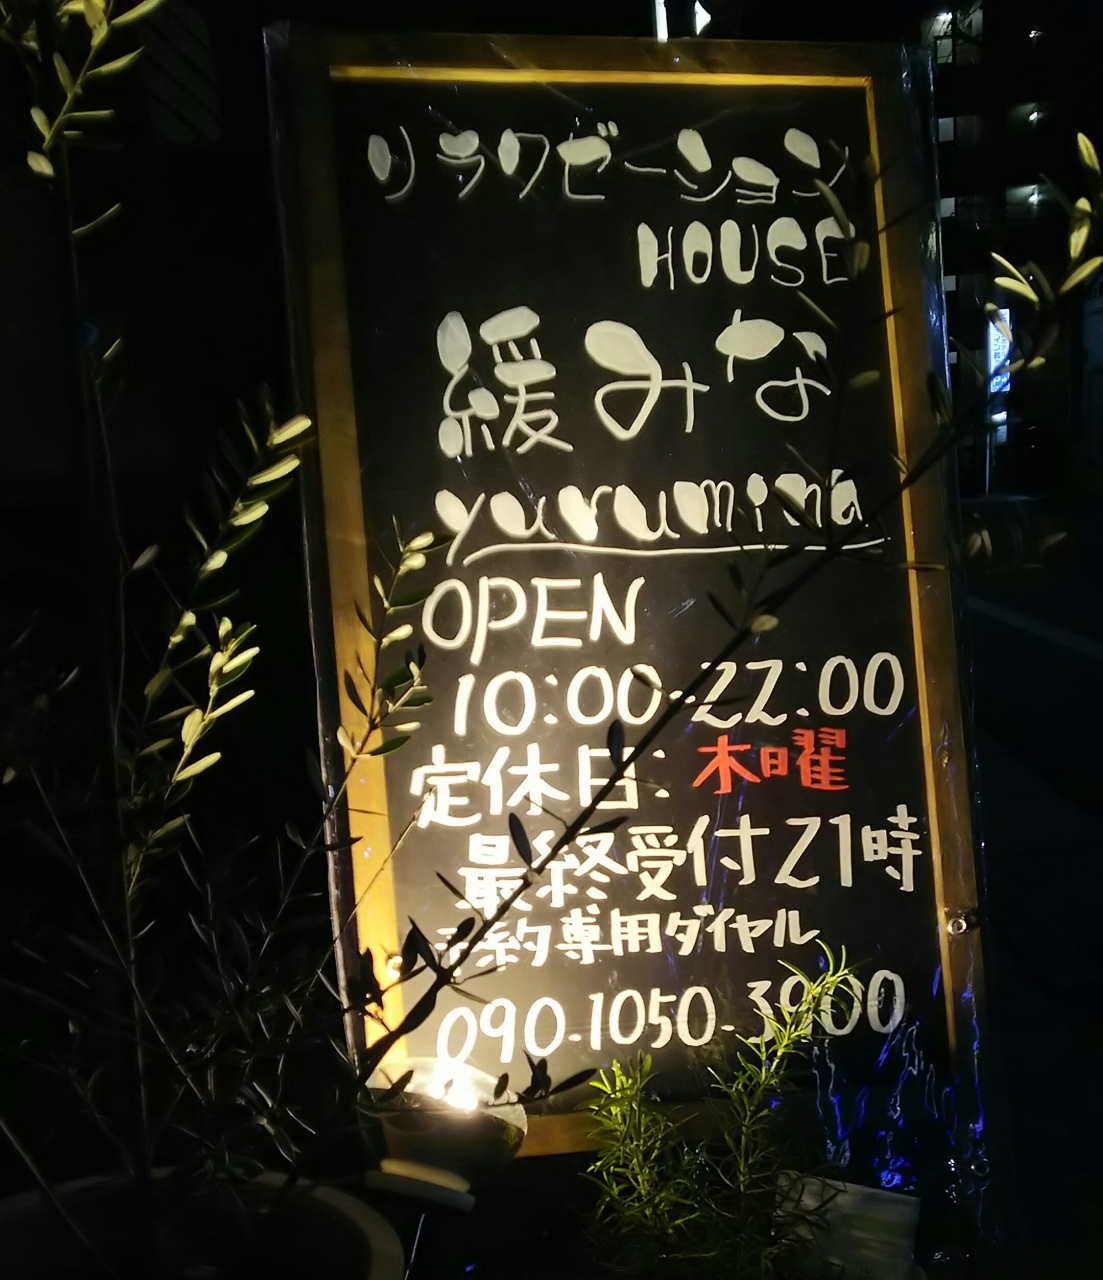 リラクゼーション
HOUSE
緩みな
yurumina
OPEN
10:00-22:00
定休日:木曜
最終受付21時
予約専用ダイヤル
090-1050-3900